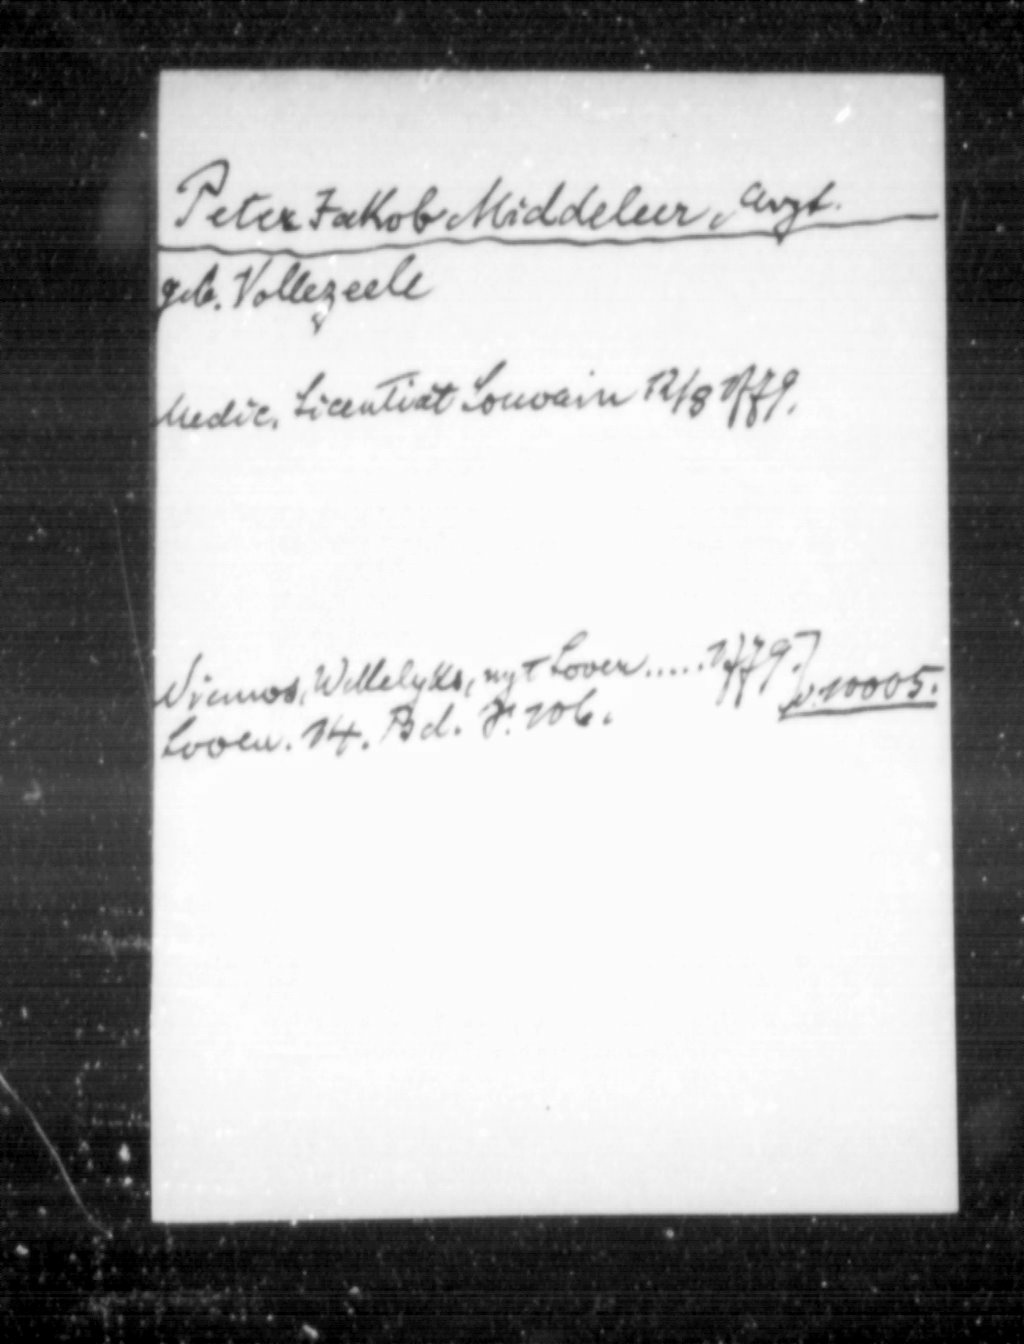 Peter Jakob Middeleer, Arzt.
geb. Vollezeele
Medic. Licentiat Louvain 12/8 1779.
Niemos, Wekelyks, uyt Loven ..... 1779.
Loven. 14. Bd. S. 106. 10005.